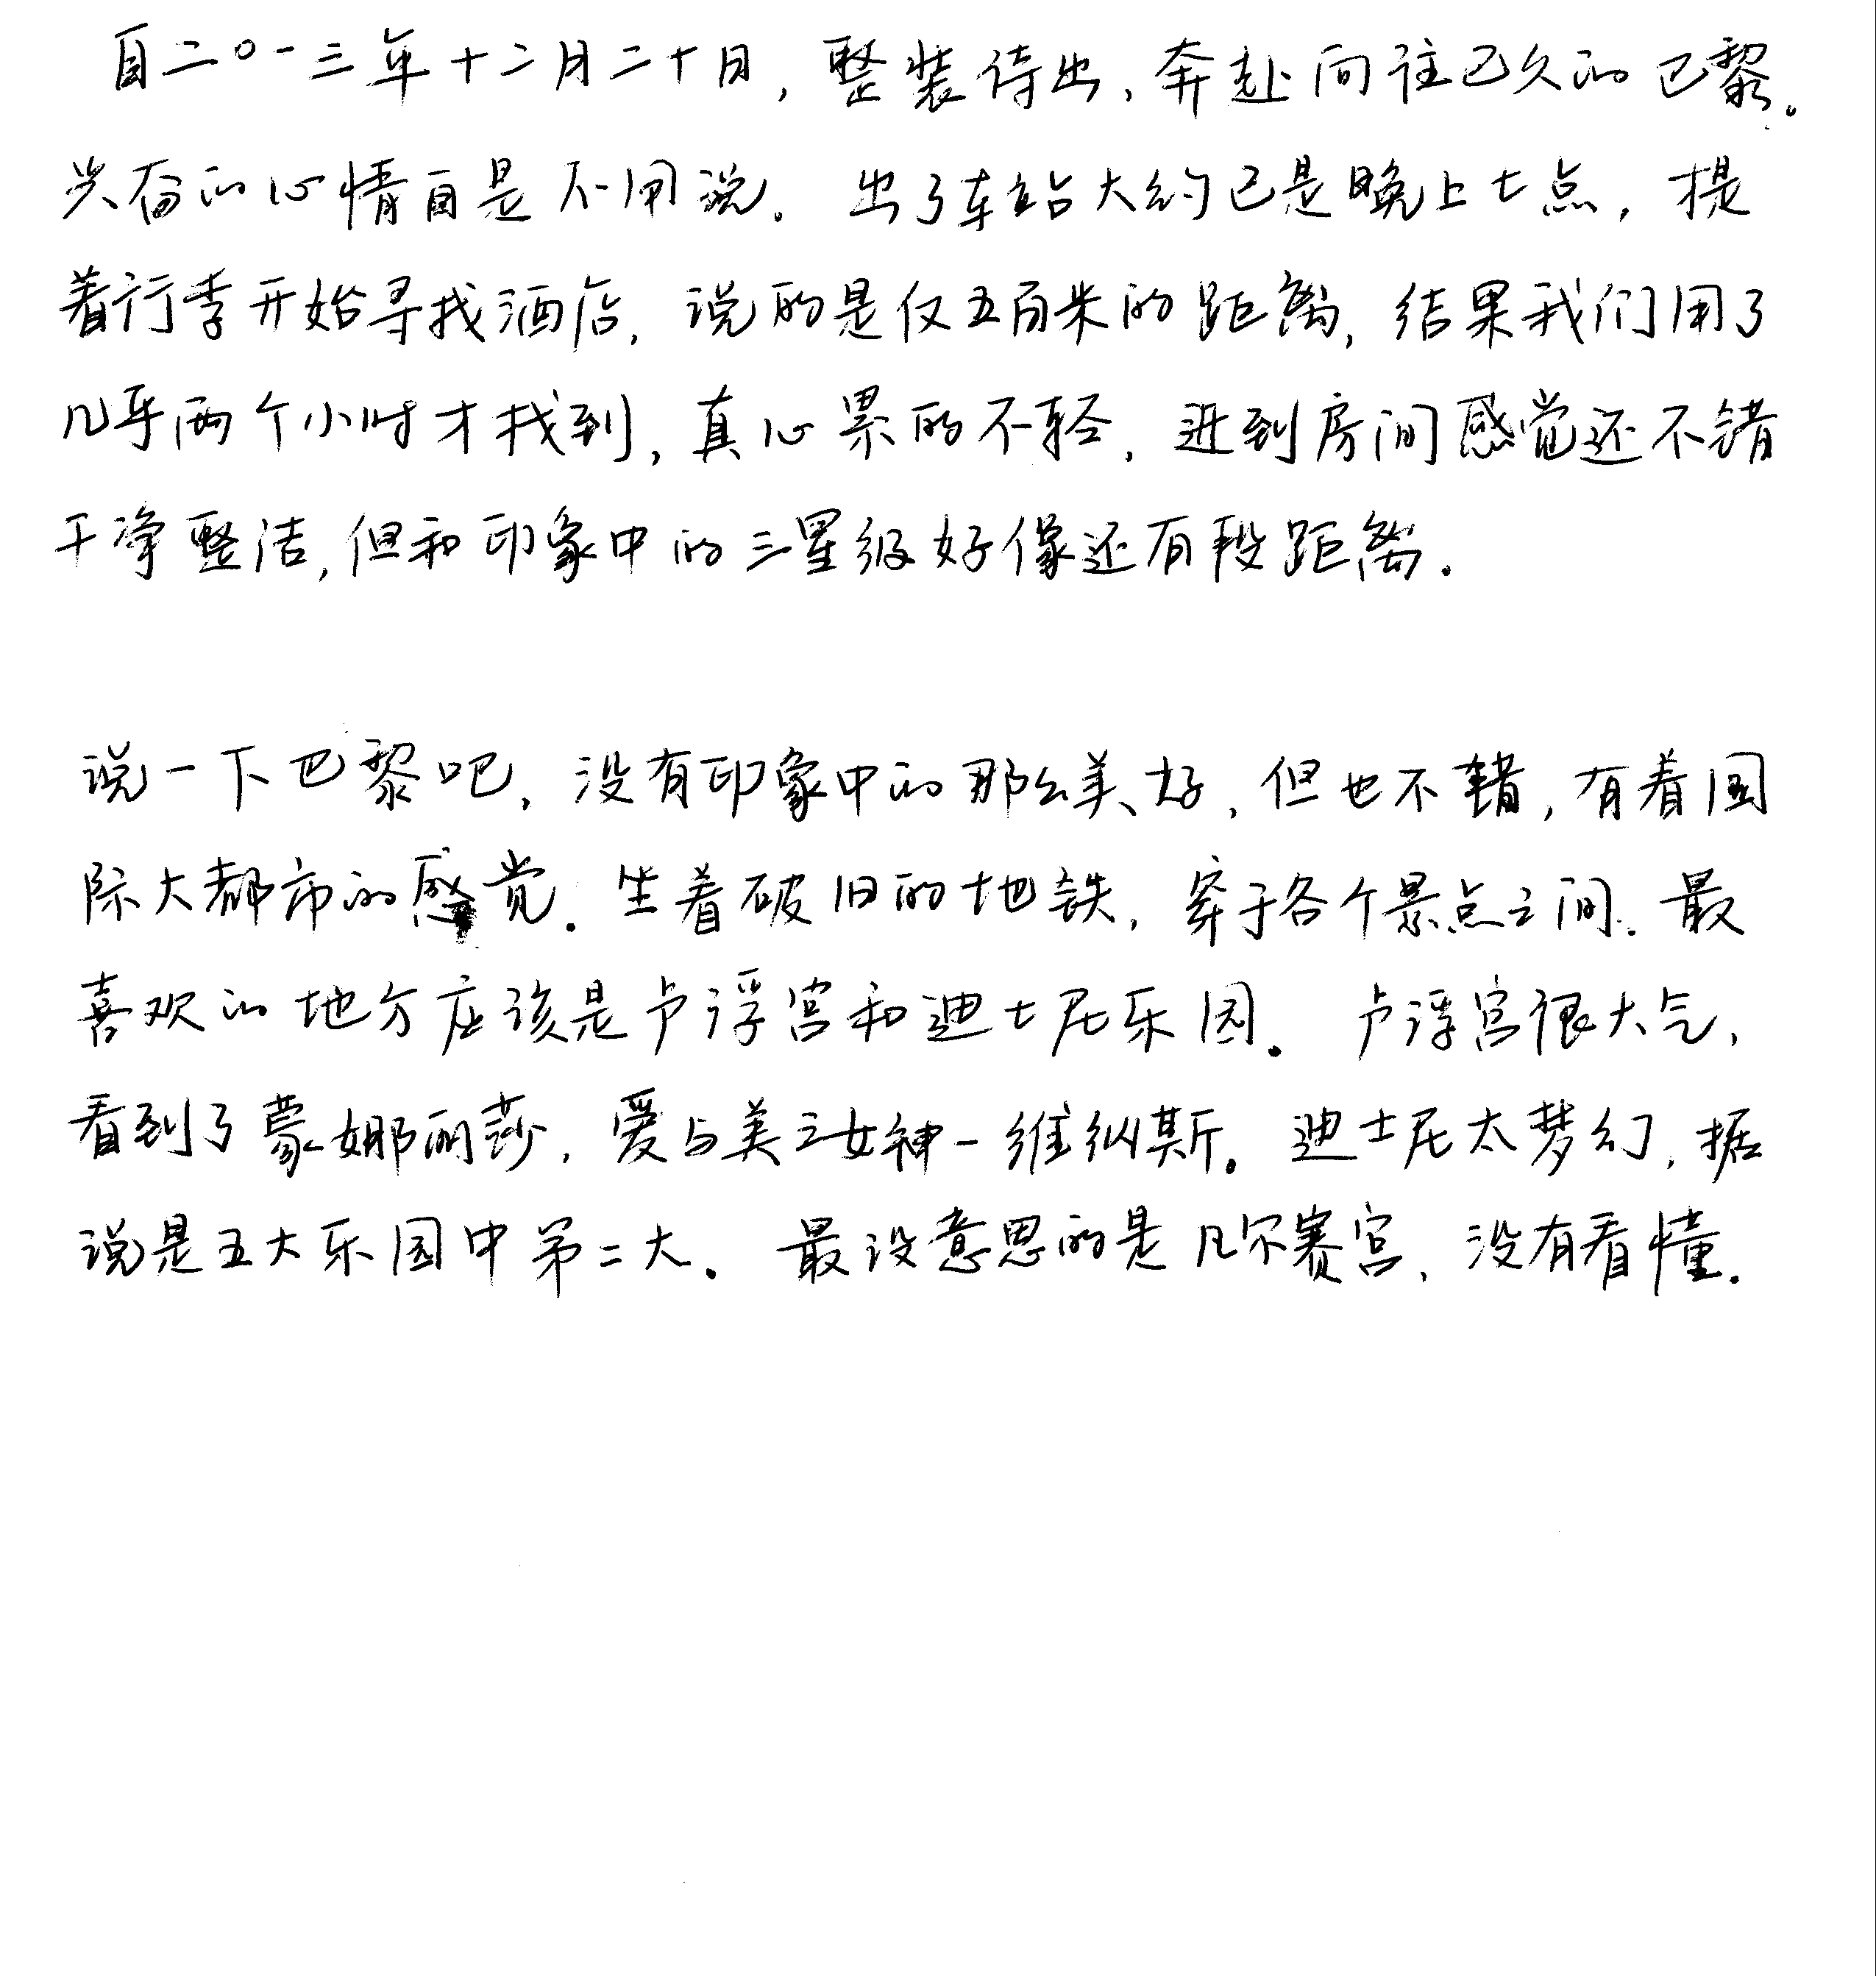 自二〇一三年十二月二十日，整装待出，奔赴向往已久的巴黎。
兴奋的心情自是不用说。出了车站大约已是晚上七点，提
着行李开始寻找酒店，说的是仅五百米的距离，结果我们用了
几乎两个小时才找到，真心累的不轻，进到房间感觉还不错
干净整洁，但和印象中的三星级好像还有段距离.
说一下巴黎吧，没有印象中的那么美好，但也不错，有着国
际大都市的感觉.坐着破旧的地铁，穿于各个景点之间.最
喜欢的地方应该是卢浮宫和迪士尼乐园.卢浮宫很大气，
看到了蒙娜丽莎，爱与美之女神一维纳斯。迪士尼太梦幻，据
说是五大乐园中第二大.最没意思的是凡尔赛宫，没有看懂.